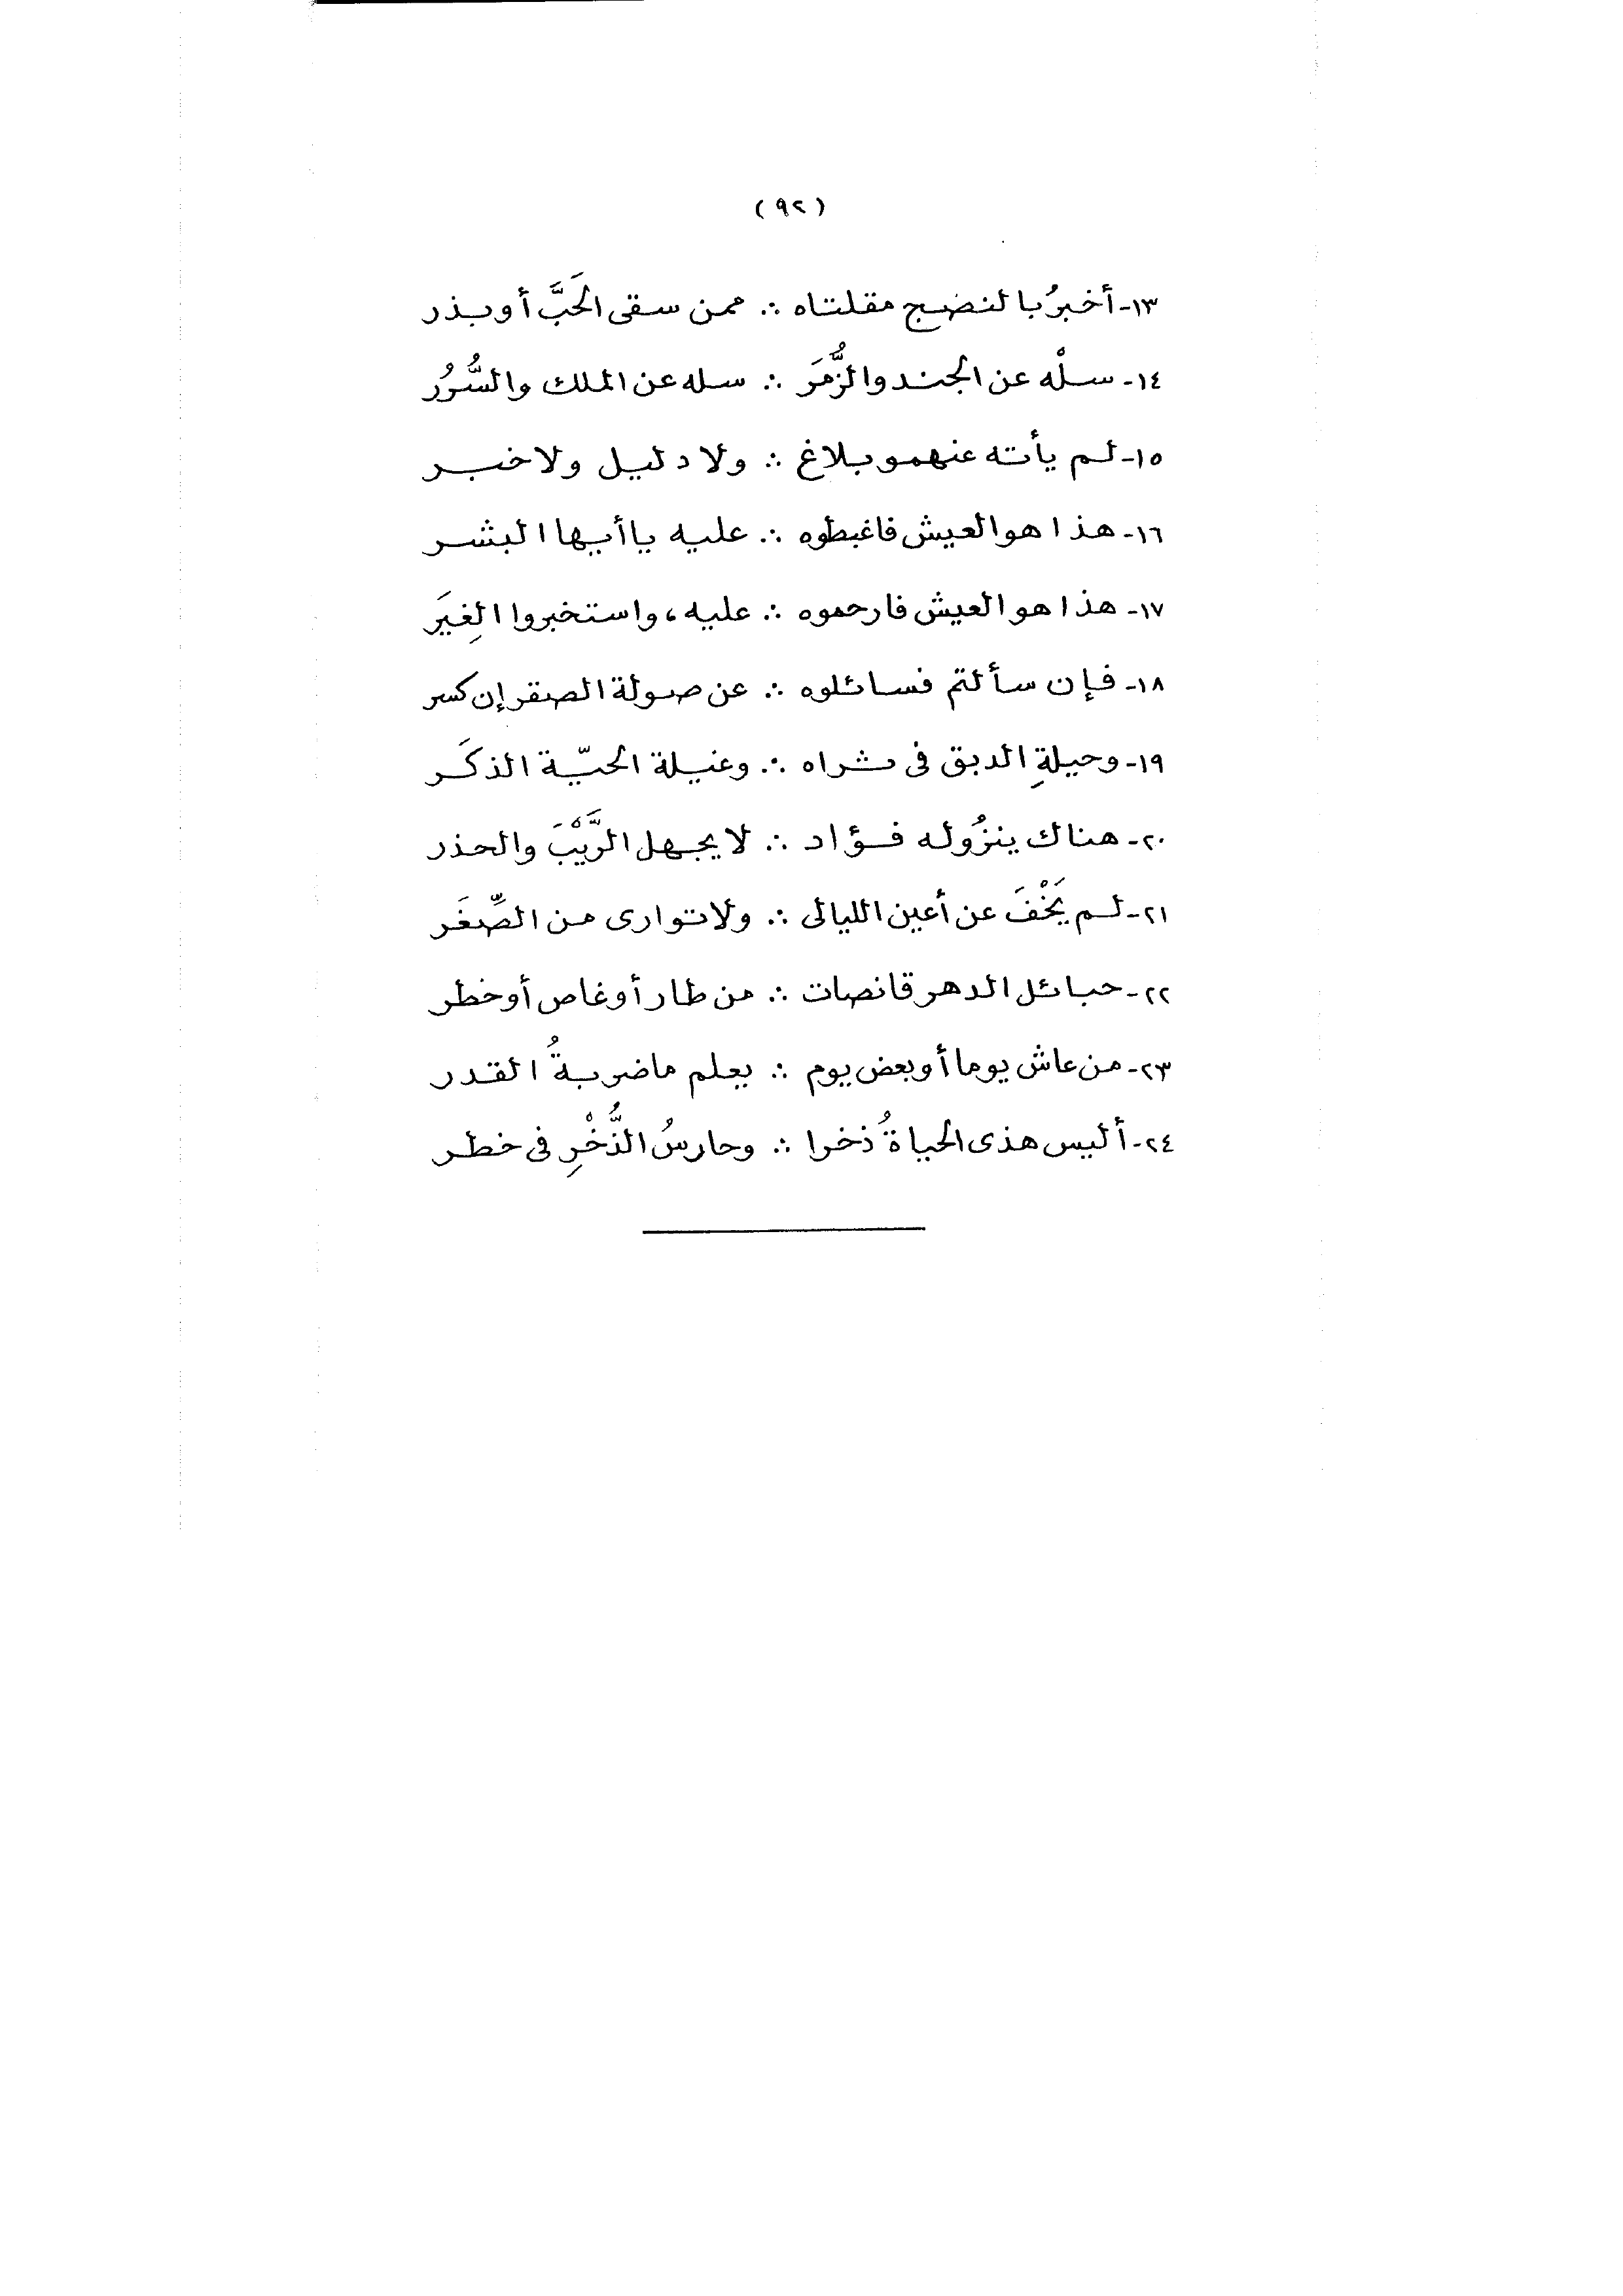 (٩٢)
١٣- أخبرُ بالنضج مقلتاه ∴ ممن سقى الحَبَّ أو بذر
١٤- سلْه عن الجند والزُّمَر ∴ سله عن الملك والسُّرُر
١٥- لم يأته عنهمو بلاغ ∴ ولا دليل ولا خبر
١٦- هذا هو العيش فاغبطوه ∴ عليه يا أيها البشر
١٧- هذا هو العيش فارحموه ∴ عليه، واستخبروا الغِيَر
١٨- فإن سألتم فسائلوه ∴ عن صولة الصقر إن كسر
١٩- وحيلةِ الدبق فى ثراه ∴ وغيلة الحيّة الذكَر
٢٠- هناك ينزُو له فؤاد ∴ لا يجهل الرَّيْبَ والحذر
٢١- لم يَخْفَ عن أعين الليالى ∴ ولا توارى من الصِّغَر
٢٢- حبائل الدهر قانصات ∴ من طار أو غاص أو خطر
٢٣- من عاش يوما أو بعض يوم ∴ يعلم ما ضربةُ القدر
٢٤- أليس هذى الحياةُ ذخرا ∴ وحارسُ الذُّخْرِ فى خطر